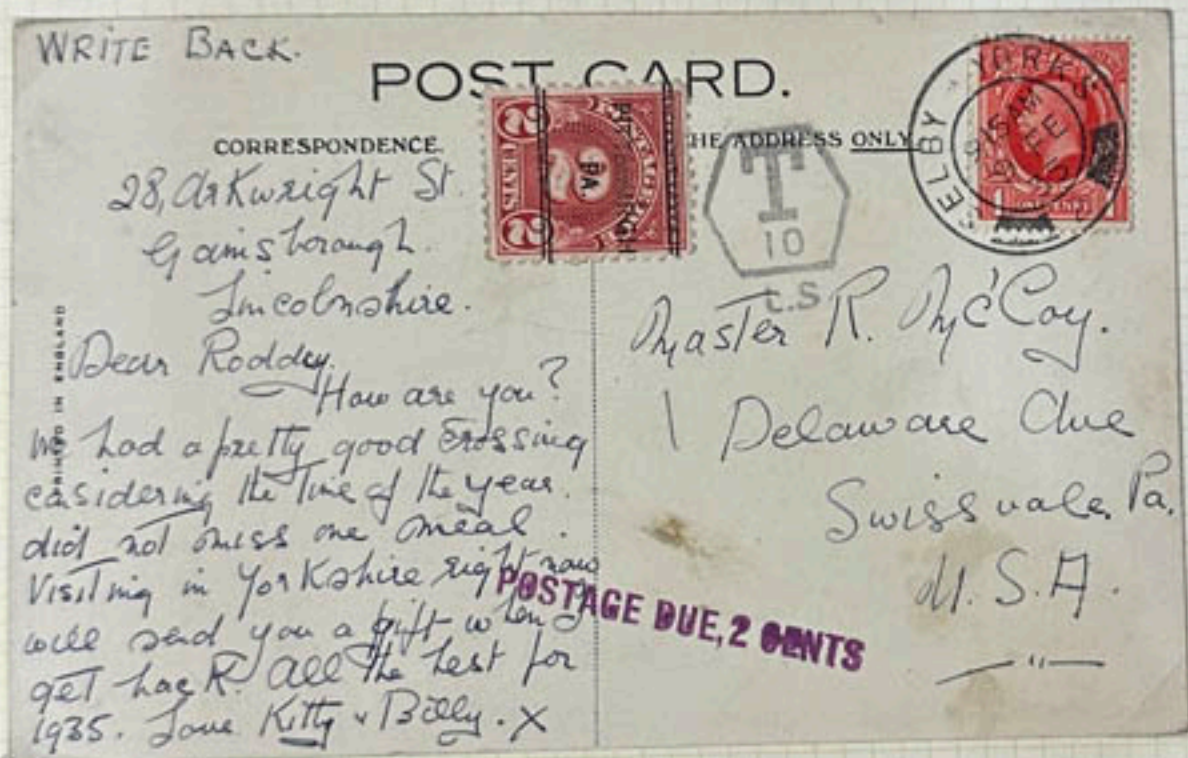 WRITE BACK.
POST CARD.
CORRESPONDENCE.
THE ADDRESS ONLY.
28, Arkwright St.
Gainsborough.
Lincolnshire.
Dear Roddy.
How are you?
We had a pretty good Crossing
considering the time of the year.
did not miss one meal.
Visiting in Yorkshire right now
will send you a gift when I
get back. All the best for
1935. Love Kitty & Billy. X
PRINTED IN ENGLAND
2 CENTS 2
PA.
T
10
C.S
SELBY YORKS
9 15 AM
ONE PENNY
Master R. McCoy.
1 Delaware Ave
Swissvale, Pa.
U.S.A.
POSTAGE DUE, 2 CENTS